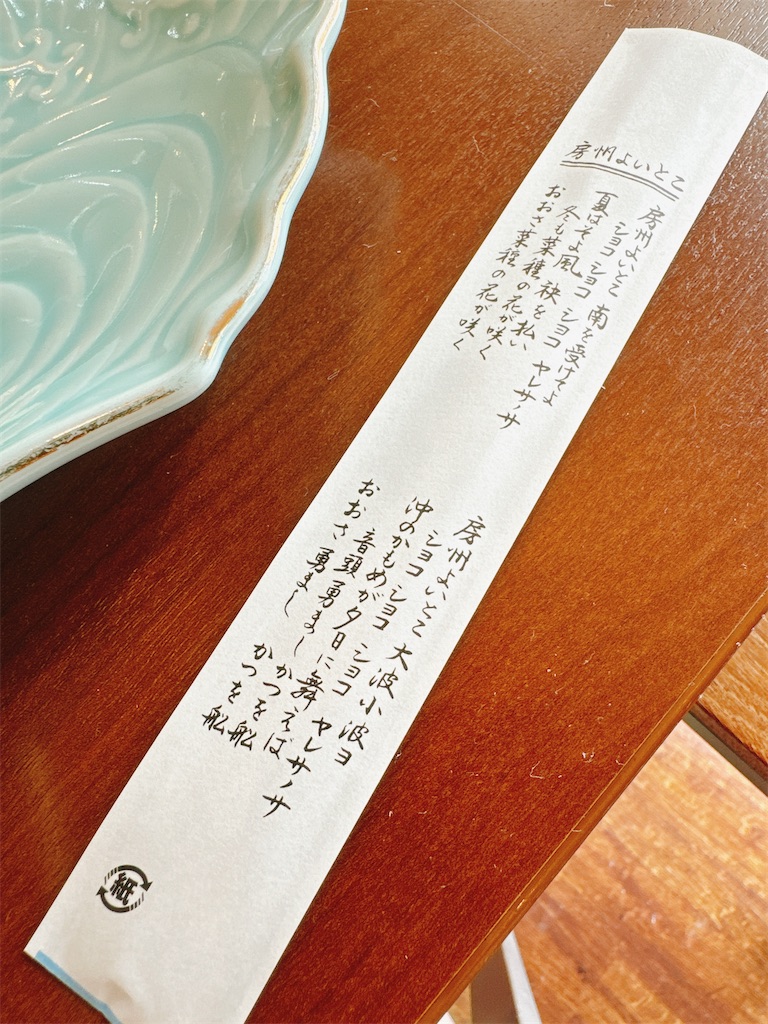 房州よいとこ
房州よいとこ 南を受けてよ
ショコ ショコ ショコ ヤレサノサ
夏はそよ風 袂を払い
冬も菜種の花が咲く
おおさ菜種の花が咲く
房州よいとこ 大波小波ヨ
ショコ ショコ ショコ ヤレサノサ
沖のかもめが夕日に舞えば
音頭勇まし かつを船
おおさ勇まし かつを船
紙